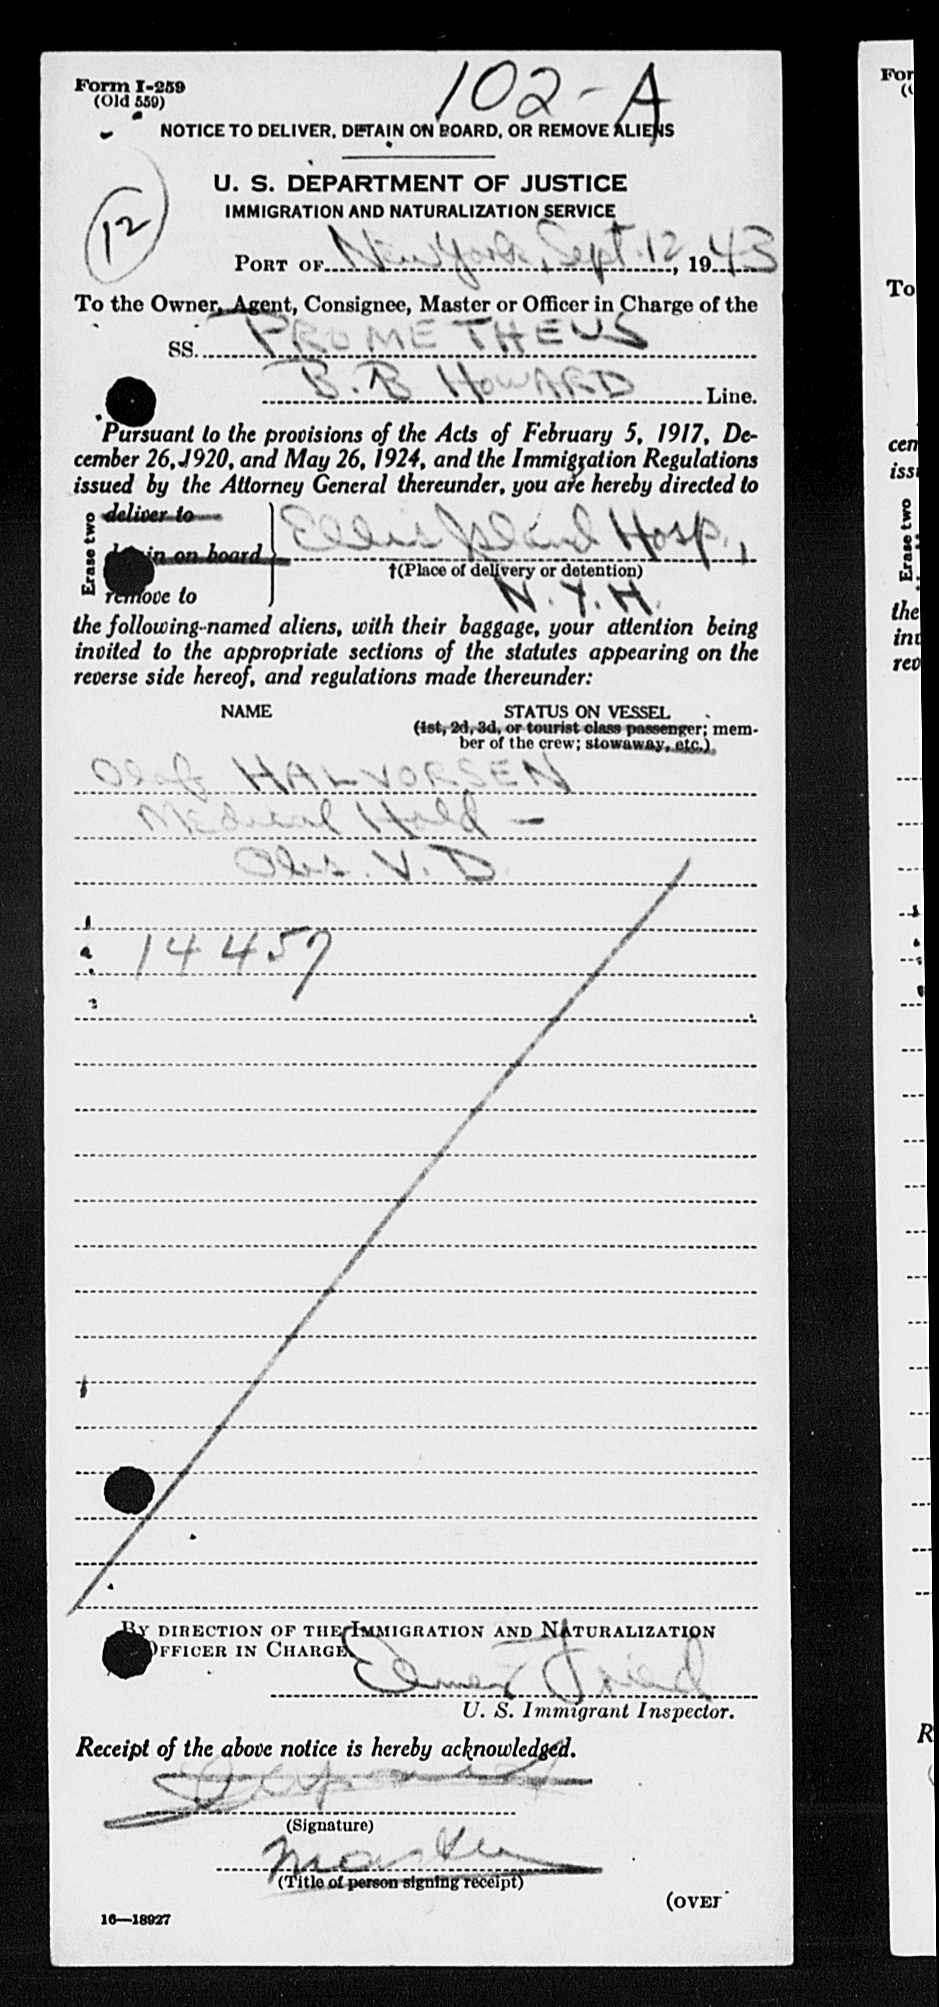 Form I-259
(Old 559)
102-A
NOTICE TO DELIVER, DETAIN ON BOARD, OR REMOVE ALIENS
U. S. DEPARTMENT OF JUSTICE
IMMIGRATION AND NATURALIZATION SERVICE
12
PORT OF New York, Sept. 12, 1943
To the Owner, Agent, Consignee, Master or Officer in Charge of the
SS. PROMETHEUS
B. B HOWARD Line.
Pursuant to the provisions of the Acts of February 5, 1917, De-
cember 26, 1920, and May 26, 1924, and the Immigration Regulations
issued by the Attorney General thereunder, you are hereby directed to
Erase two
deliver to
in on board
remove to
Ellis Island Hosp.,
†(Place of delivery or detention)
N.Y.H.
the following-named aliens, with their baggage, your attention being
invited to the appropriate sections of the statutes appearing on the
reverse side hereof, and regulations made thereunder:
NAME STATUS ON VESSEL
(1st, 2d, 3d, or tourist class passenger; mem-
ber of the crew; stowaway, etc.)
Olaf HALVORSEN
Medical Hold -
Obs. V. D.
14457
BY DIRECTION OF THE IMMIGRATION AND NATURALIZATION
OFFICER IN CHARGE
Elmer Fried
U. S. Immigrant Inspector.
Receipt of the above notice is hereby acknowledged.
(Signature)
Master
(Title of person signing receipt)
(OVER
16—18927
For
To
cen
iss
Erase two
the
inv
rev
R